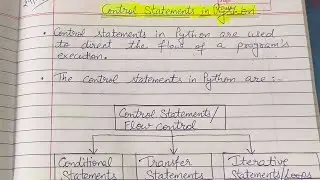 Control Statements in Python
• Control statements in Python are used
to direct the flow of a program's
execution.
• The control statements in Python are :-
Control Statements/
Flow control
Conditional Transfer Iterative
Statements Statements Statements/Loops